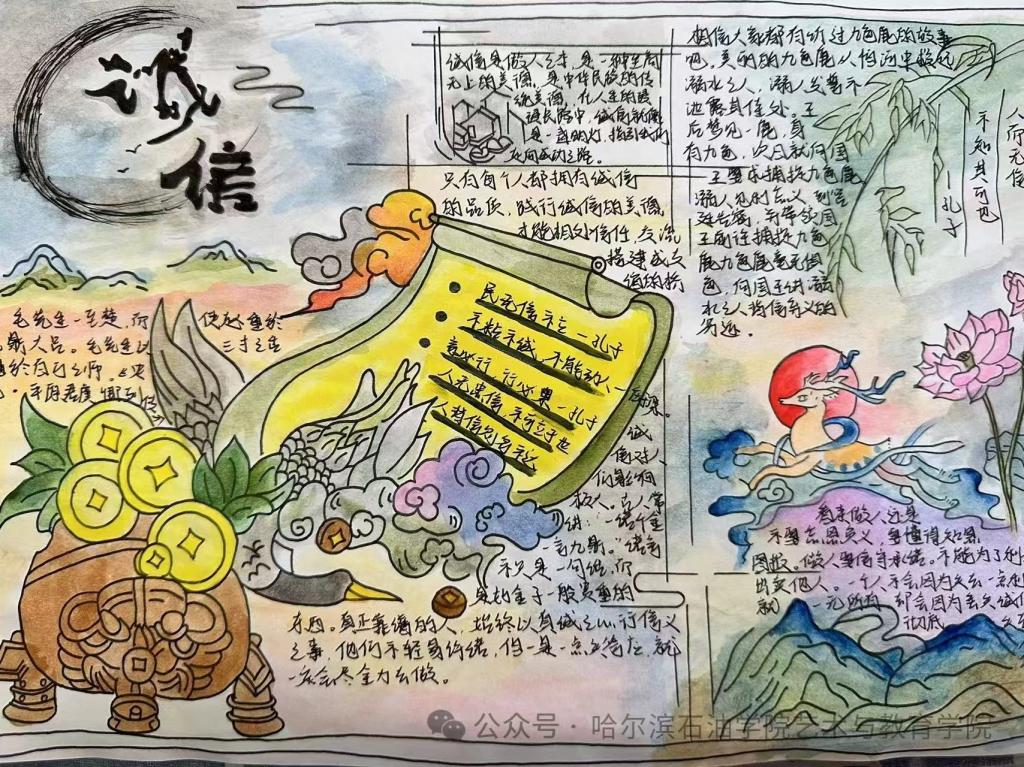 诚信
诚信是做人之本，是一种至高
无上的美德，是中华民族的传
统美德，在人生的漫
漫长路中，诚信就像
是一盏明灯，指引我们
走向成功之路。
只有每个人都拥有诚信
的品质，践行诚信的美德，
才能相处信任，交流
搭建成交
值的桥
相信大家都有听过九色鹿的故事
吧，美丽的九色鹿从恒河中救起
溺水之人，溺人发誓不
泄露其住处。王
后梦见一鹿，身
有九色，次日就向国
王要求捕捉九色鹿
溺人见利忘义，到宫
殿告密，并带领国
王前往捕捉九色
鹿九色鹿毫无惧
色，向国王讲溺
水之人背信弃义的
劣迹。
人而无信
不知其可也
—孔子
民无信不立—孔子
不精不诚，不能动人—
言必行，行必果—孔子
人无忠信，不可立于世
人背信则名不达
毛先生一至楚，而
使赵重於
九鼎大吕。毛先生以
三寸之舌
诚
信对人
们影响
极人。古人常
讲：一诺千金
一言九鼎。"诺言
不只是一句话，而
是如金子一般贵重的
东西。真正靠谱的人，始终以真诚之心，行信义
之事，他们不轻易许诺，但一是一点之答应，就
一定会尽全力去做。
看来做人还是
不要忘恩负义，要懂得知恩
图报。做人要信守承诺。不能为了利
出卖他人。一个人不会因为失去一点
就一无所有，却会因为丢失诚信
彻底
公众号·哈尔滨石油学院艺术与教育学院